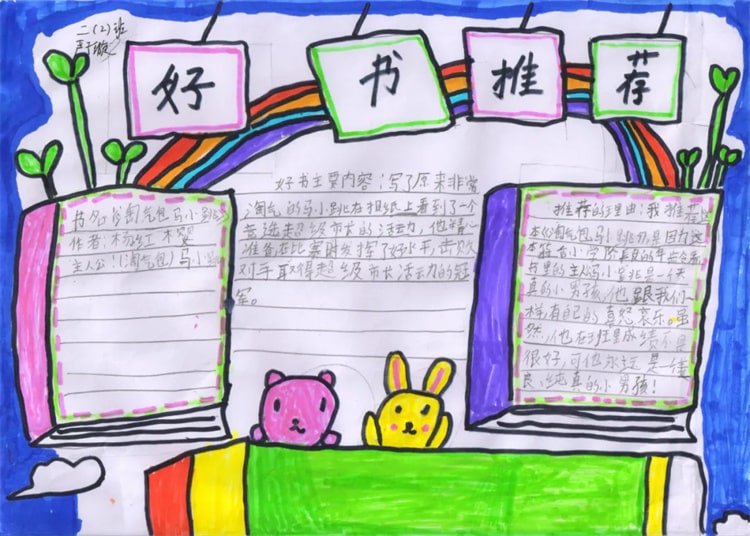 二(2)班
好书推荐
书名:淘气包马小跳
作者:杨红樱
主人公:(淘气包)马小跳
好书主要内容:写了原来非常
淘气的马小跳在报纸上看到了一个
竞选超级市长的活动,他精
准备在比赛时发挥了好水平,击败
对手取得超级市长活动的冠
军。
推荐的理由:我推荐这
本淘气包马小跳那是因为这
本
书里的主人马小跳是一个天
真的小男孩,他跟我们一
样,有自己的喜怒哀乐。虽
然,他在班里成绩不是
很好,可他永远是一个善
良、纯真的小男孩!